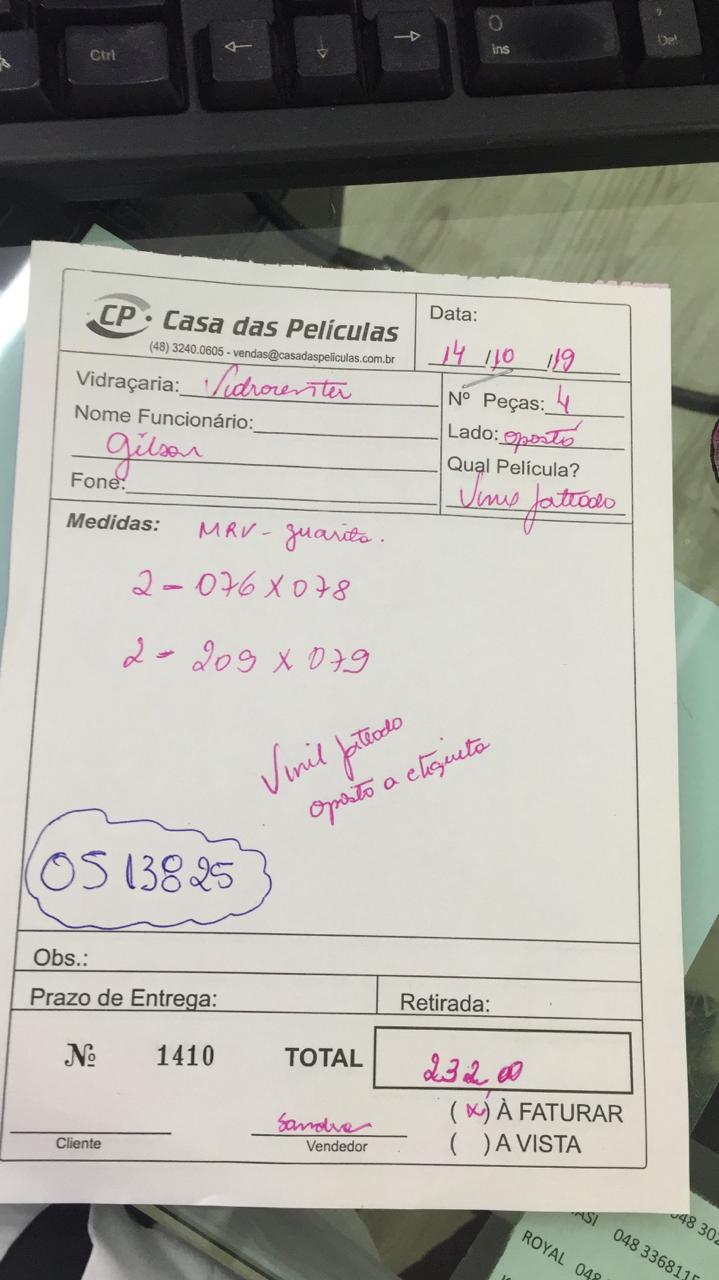 Ctrl
←
↓
→
0
Ins
,
Del
CP Casa das Películas
(48) 3240.0605 - vendas@casadaspeliculas.com.br
Data:
14/10/19
Vidraçaria: Vidrocenter
Nome Funcionário:
Gilson
Fone:
Nº Peças: 4
Lado: oposto
Qual Película?
Vinil jateado
Medidas: MRV - guarita.
2 - 076 X 078
2 - 209 X 079
Vinil jateado
oposto a etiqueta
OS 13825
Obs.:
Prazo de Entrega:
Retirada:
Nº 1410 TOTAL 232,00
(x) À FATURAR
( ) A VISTA
Cliente
Sandra
Vendedor
048 302
ASI 048 3368115
ROYAL 048